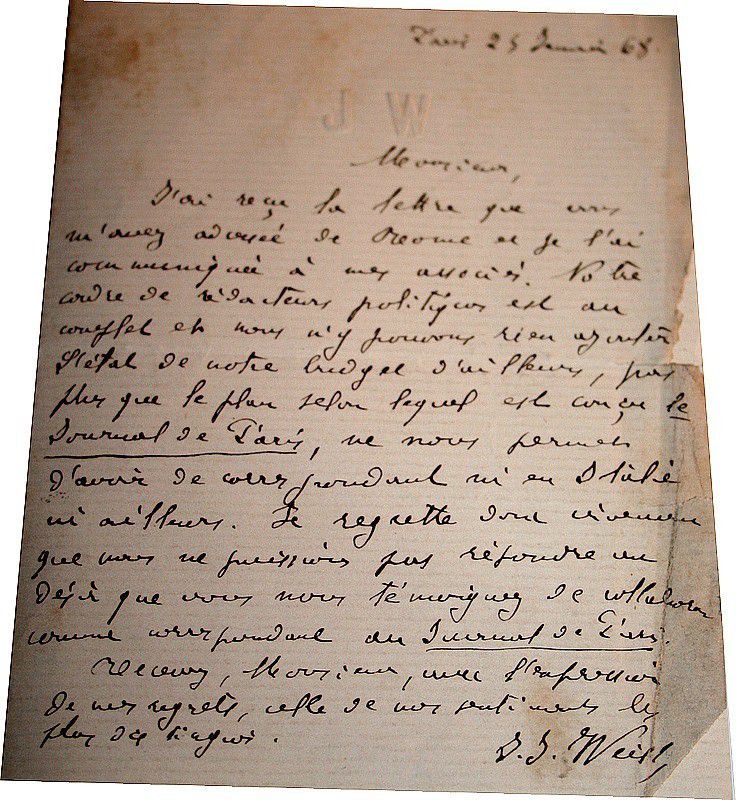 Paris 25 Janvier 68
W J
Monsieur,
J'ai reçu la lettre que vous
m'avez adressée de Rome et je l'ai
communiquée à mes associés. Notre
cadre de rédacteurs politiques est au
complet et nous n'y pouvons rien ajouter
L'état de notre budget d'ailleurs, pas
plus que le plan selon lequel est conçu le
Journal de Paris, ne nous permet
d'avoir de correspondant ni en Italie
ni ailleurs. Je regrette donc vivement
que nous ne puissions pas répondre au
désir que vous nous témoignez de collaborer
comme correspondant au Journal de Paris.
Recevez, Monsieur, avec l'expression
de mes regrets, celle de mes sentiments les
plus distingués.
J. J. Weiss